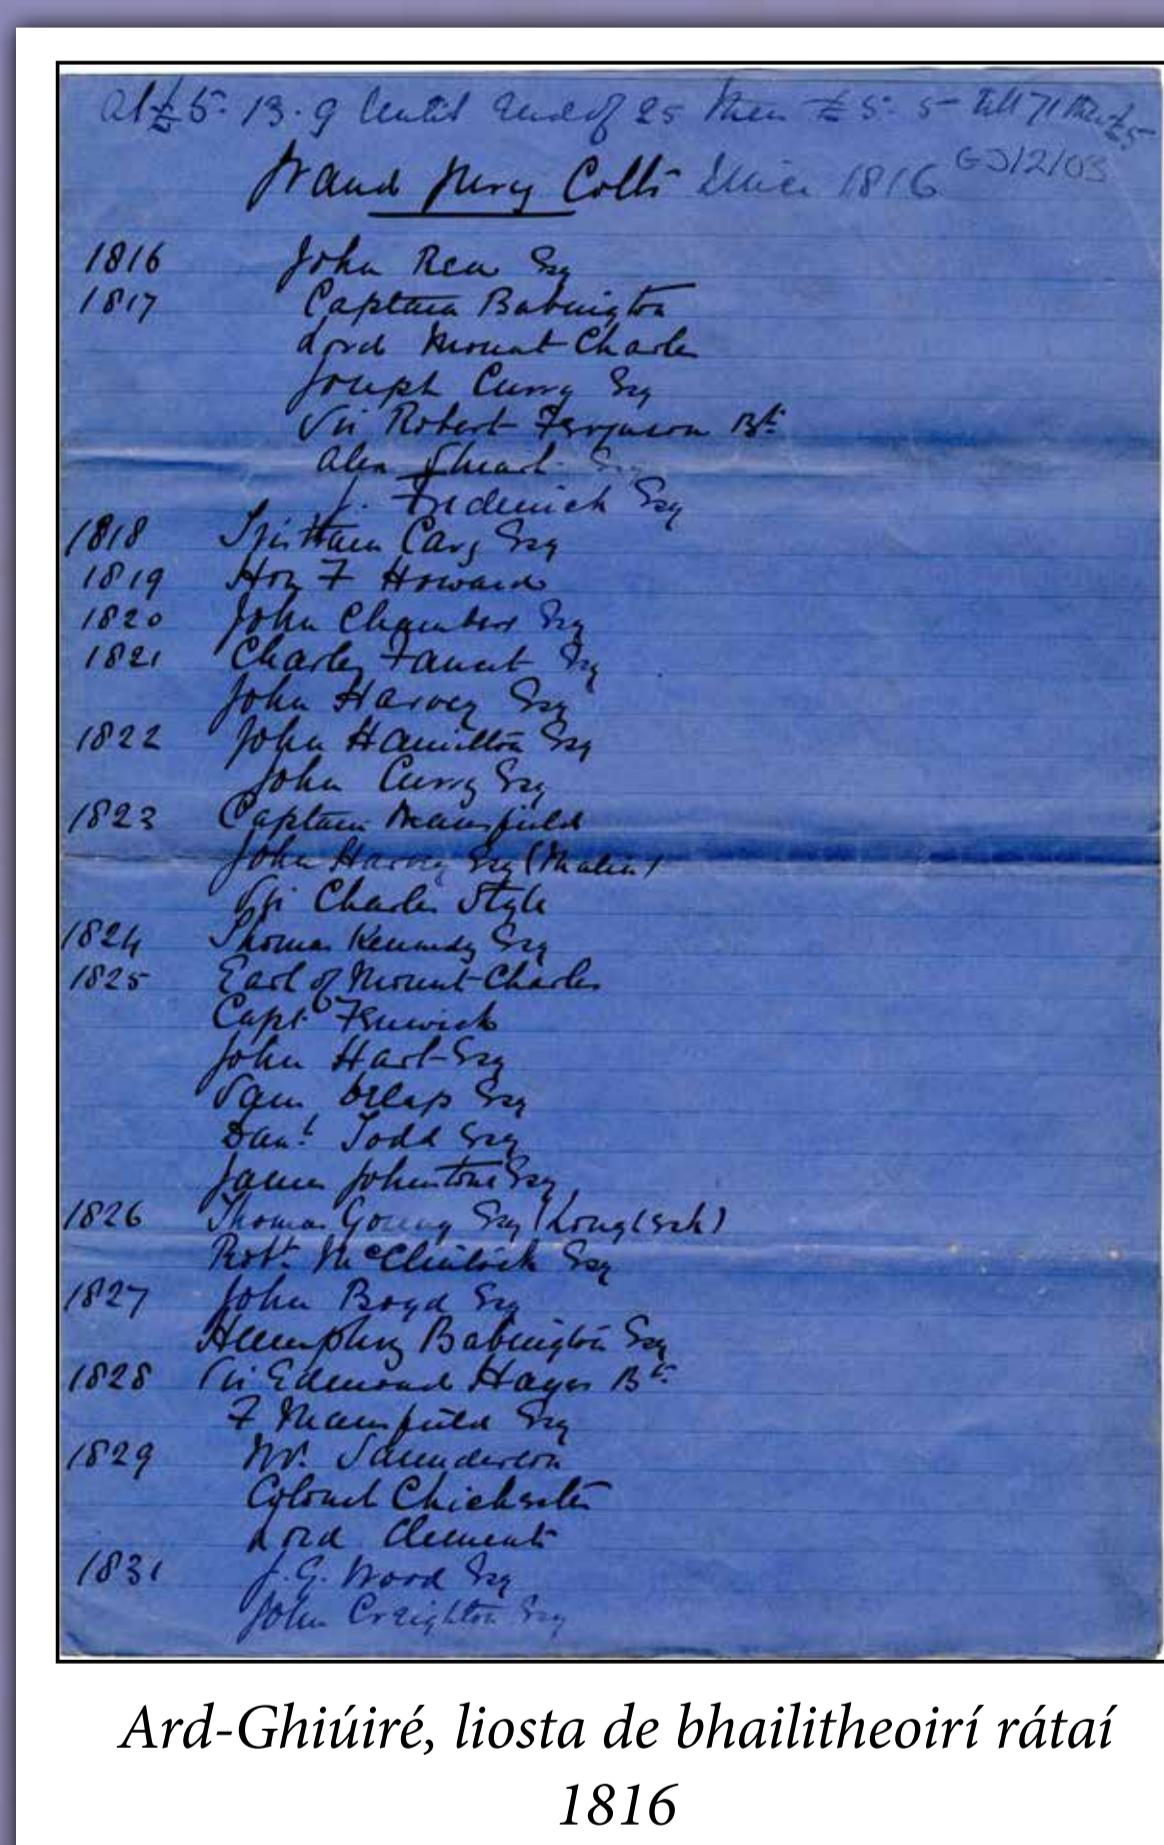 At £5. 13. 9 Until End of 25 then £5. 5 till 71 then £5
GJ/2/03
Grand Jury Colls Since 1816
1816 John Rea Esq
1817 Captain Babington
Lord Mount Charles
Joseph Curry Esq
Sir Robert Ferguson Bt
Alex Stuart Esq
J. Frederick Esq
1818 Cary Esq
1819 Hon F Howard
1820 John Chambers Esq
1821 Charley Esq
John Harvey Esq
1822 John Hamilton Esq
John Curry Esq
1823 Captain Mansfield
John Harvey Esq (Malin)
Sir Charles Style
1824 Thomas Kennedy Esq
1825 Earl of Mount Charles
Capt Fenwick
John Hart Esq
Sam Esq
Danl Todd Esq
James Johnston Esq
1826 Thomas Esq
Robt McClintock Esq
1827 John Boyd Esq
Humphry Babington Esq
1828 Sir Edmond Hayes Bt
F Mansfield Esq
1829 Mr. Saunderson
Colonel Chichester
Lord Clements
1831 J. G. Wood Esq
John Creighton Esq
Ard-Ghiúiré, liosta de bhailitheoirí rátaí
1816